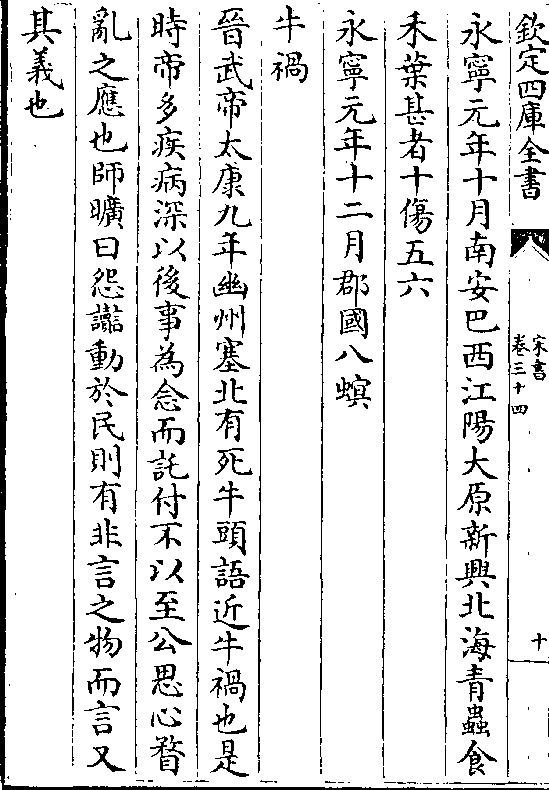 欽定四庫全書
宋書
卷三十四
十
永寧元年十月南安巴西江陽大原新興北海青蟲食
禾葉甚者十傷五六
永寧元年十二月郡國八螟
牛禍
晉武帝太康九年幽州塞北有死牛頭語近牛禍也是
時帝多疾病深以後事為念而託付不以至公思心瞀
亂之應也師曠曰怨讟動於民則有非言之物而言又
其義也